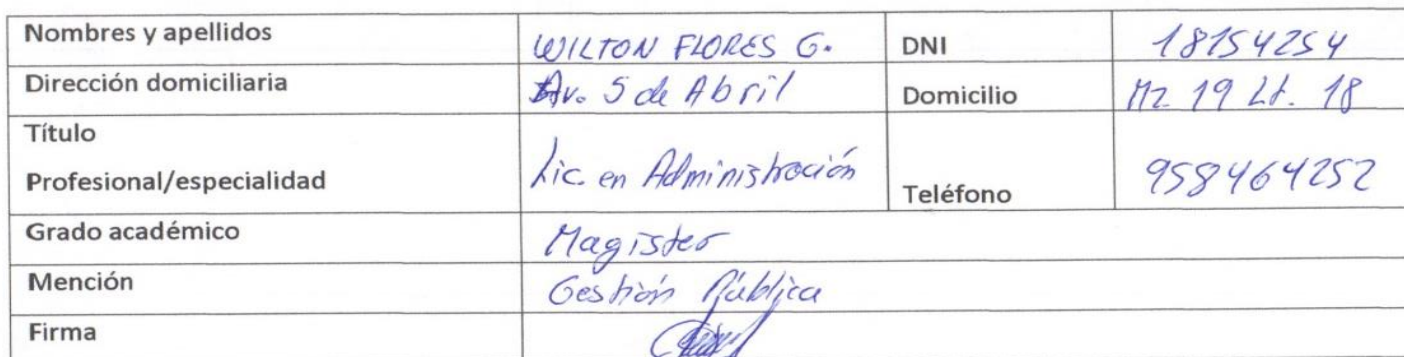 Nombres y apellidos WILTON FLORES G. DNI 18154254
Dirección domiciliaria Av. 5 de Abril Domicilio Mz 19 Lt. 18
Título
Profesional/especialidad Lic. en Administración Teléfono 958464252
Grado académico Magister
Mención Gestión Pública
Firma